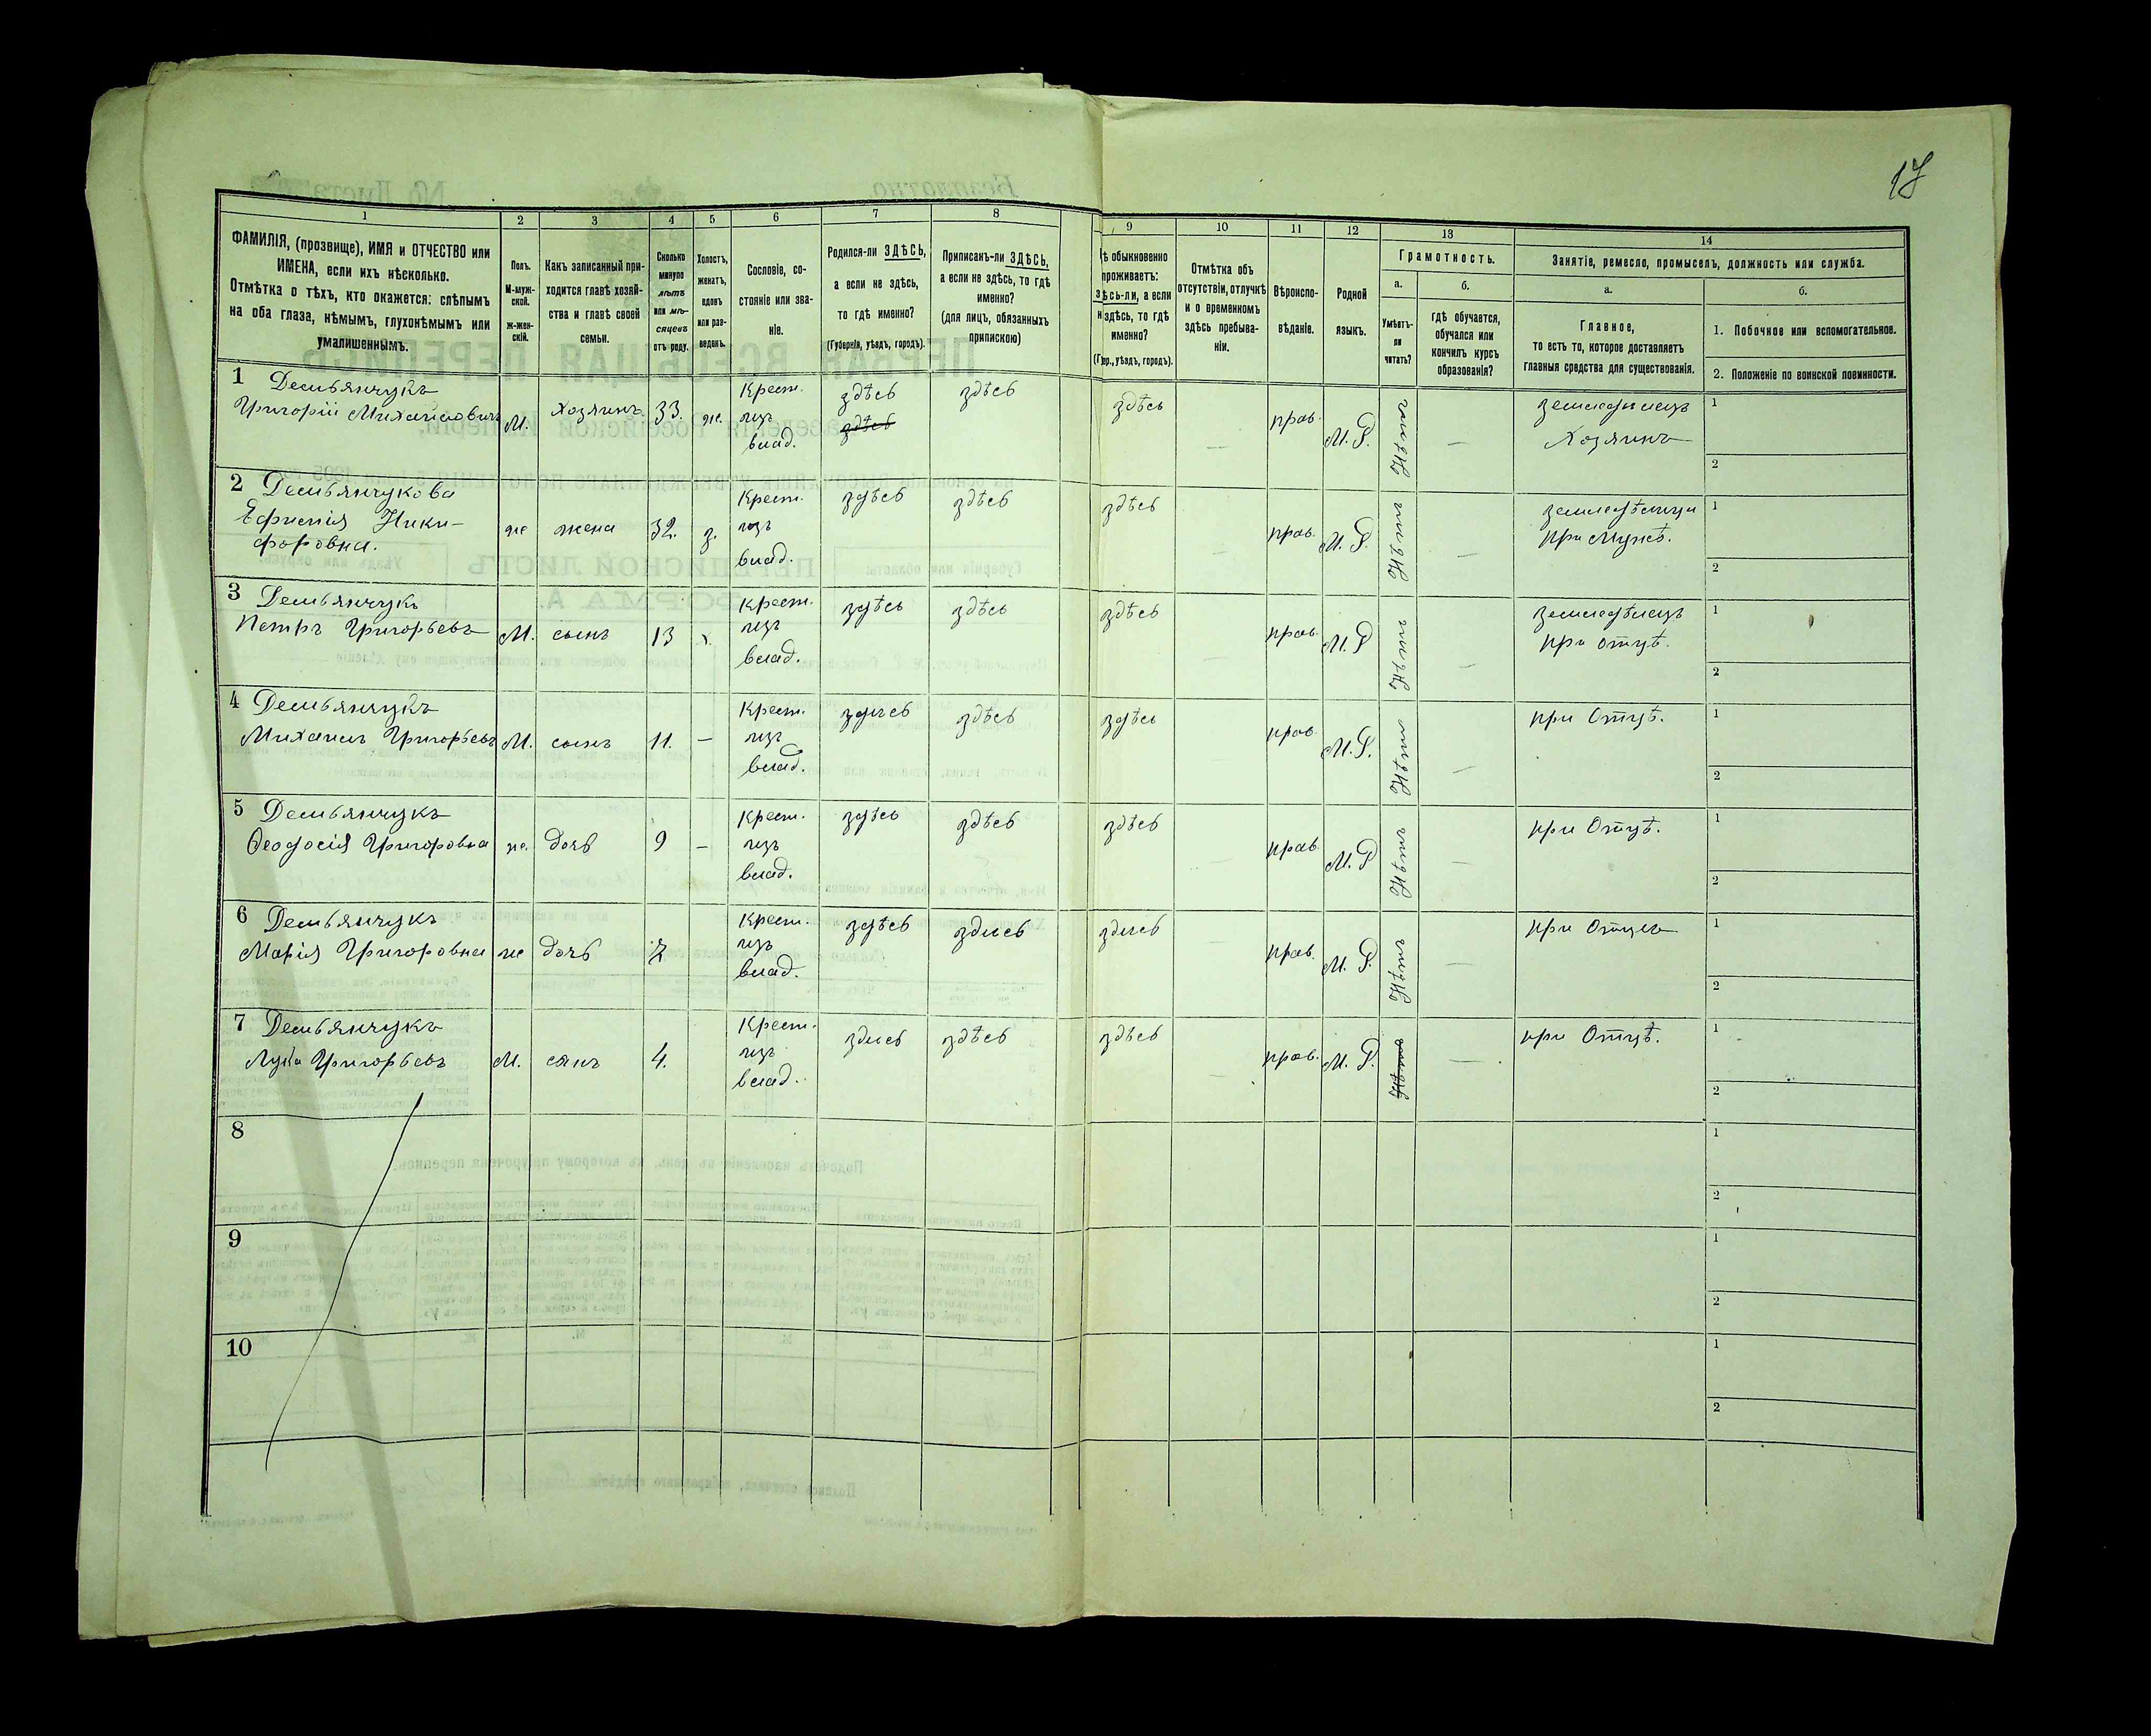 17
1 2 3 4 5 6 7 8 9 10 11 12 13 14
ФАМИЛІЯ, (прозвище), ИМЯ и ОТЧЕСТВО или
ИМЕНА, если ихъ нѣсколько.
Отмѣтка о тѣхъ, кто окажется: слѣпымъ
на оба глаза, нѣмымъ, глухонѣмымъ или
умалишеннымъ.
Полъ.
М-муж-
ской.
Ж-жен-
скій.
Какъ записанный при-
ходится главѣ хозяй-
ства и главѣ своей
семьи.
Сколько
минуло
лѣтъ
или мѣ-
сяцевъ
отъ роду.
Холостъ,
женатъ,
вдовъ
или раз-
веденъ.
Сословіе, со-
стояніе или зва-
ніе.
Родился-ли ЗДѢСЬ,
а если не здѣсь,
то гдѣ именно?
(Губернія, уѣздъ, городъ).
Приписанъ-ли ЗДѢСЬ,
а если не здѣсь, то гдѣ
именно?
(для лицъ, обязанныхъ
припискою)
обыкновенно
проживаетъ:
здѣсь-ли, а если
здѣсь, то гдѣ
именно?
уѣздъ, городъ).
Отмѣтка объ
отсутствіи, отлучкѣ
и о временномъ
здѣсь пребыва-
ніи.
Вѣроиспо-
вѣданіе.
Родной
языкъ.
Грамотность.
а.
Умѣетъ-
ли
читать?
б.
гдѣ обучается,
обучался или
кончилъ курсъ
образованія?
Занятіе, ремесло, промыселъ, должность или служба.
а.
Главное,
то есть то, которое доставляетъ
главныя средства для существованія.
б.
1. Побочное или вспомогательное.
2. Положеніе по воинской повинности.
1 Демьянчукъ
Григорій Михайловичъ М. Хозяинъ 33. ж. Крест. изъ влад. здѣсь здѣсь здѣсь здѣсь — прав. М. Р. Нѣтъ — земледѣлецъ Хозяинъ 1 2
2 Демьянчукова
Ефимія Ники-
форовна. ж жена 32. з. Крест. изъ влад. здѣсь здѣсь здѣсь — прав. М. Р. Нѣтъ — земледѣлица при Мужѣ. 1 2
3 Демьянчукъ
Петръ Григорьевъ М. сынъ 13 х. Крест. изъ влад. здѣсь здѣсь здѣсь — прав. М. Р Нѣтъ — земледѣлецъ при отцѣ. 1 2
4 Демьянчукъ
Михаилъ Григорьевъ М. сынъ 11. — Крест. изъ влад. здѣсь здѣсь здѣсь — прав. М. Р. Нѣтъ — при Отцѣ. 1 2
5 Демьянчукъ
Ѳеодосія Григоровна ж. дочь 9 — Крест. изъ влад. здѣсь здѣсь здѣсь — прав. М. Р Нѣтъ — при Отцѣ. 1 2
6 Демьянчукъ
Марія Григоровна ж дочь Крест. изъ влад. здѣсь здѣсь здѣсь — прав. М. Р. Нѣтъ — при Отцѣ 1 2
7 Демьянчукъ
Лука Григорьевъ М. сынъ 4. Крест. изъ влад. здѣсь здѣсь здѣсь — прав. М. Р. Нѣтъ — при Отцѣ. 1 2
8 1 2
9 1 2
10 1 2